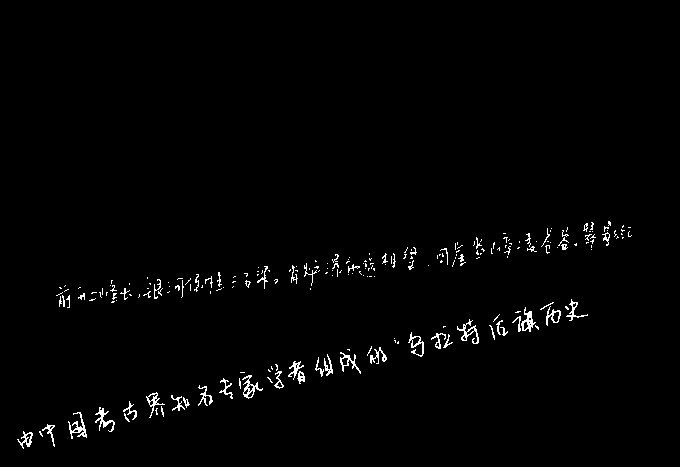 前开二峰长,银河倒挂三石梁。香炉瀑布遥相望,回崖沓嶂凌苍苍。翠影红
由中国考古界知名专家学者组成的“乌拉特后旗历史